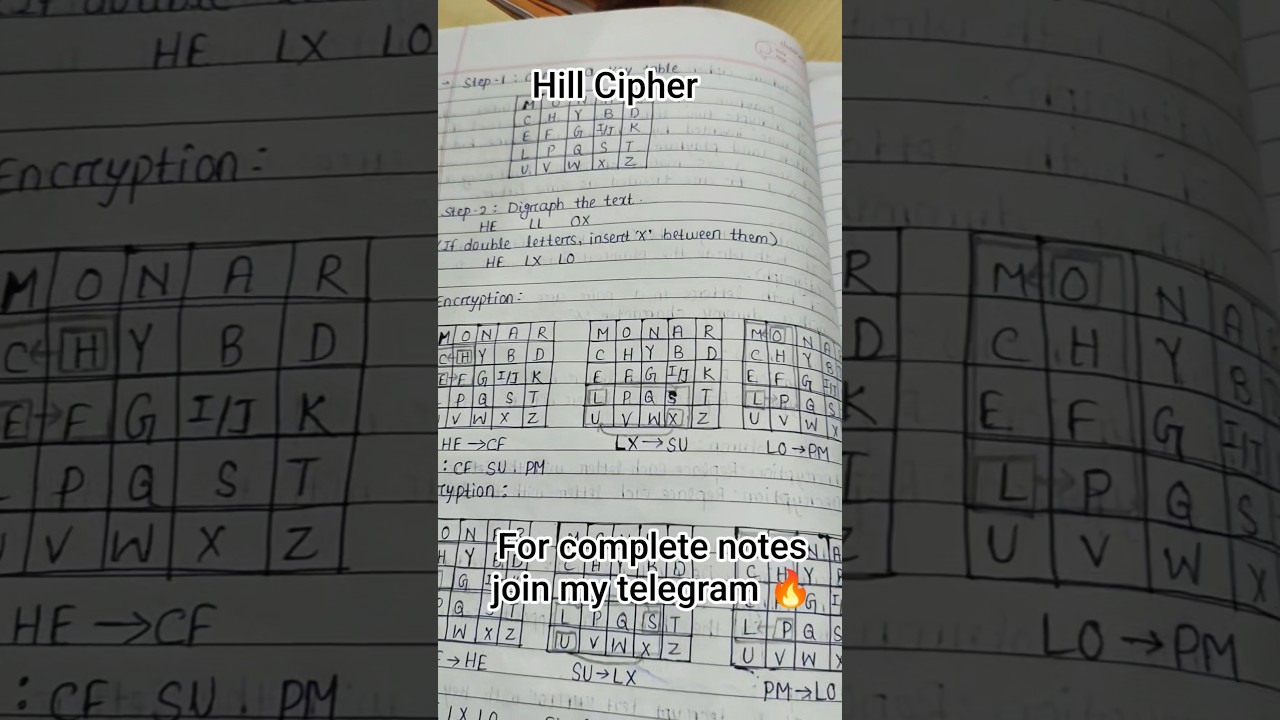 Hill Cipher
Step-1: table
M O
C H Y B D
E F G I/J K
L P Q S T
U V W X Z
Step-2: Digraph the text.
HE LL OX
(If double letters, insert 'X' between them)
HE LX LO
Encryption:
M O N A R M O N A R M O N A
C H Y B D C H Y B D C H Y B
E F G I/J K E F G I/J K E F G I/J
P Q S T L P Q S T L P Q S
V W X Z U V W X Z U V W X
HE → CF LX → SU LO → PM
: CF SU PM
ryption:
O N
H Y B D C H Y B D C H Y
G G I
P Q L P Q S T L P Q S
W X Z U V W X Z U V W X
→ HE SU → LX PM → LO
LX LO
For complete notes
join my telegram 🔥
HE LX LO
Encryption:
M O N A R
C H Y B D
E F G I/J K
P Q S T
V W X Z
HE → CF
: CF SU PM
R M O N A
D C H Y B
K E F G I/J
L P Q S
Z U V W X
LO → PM